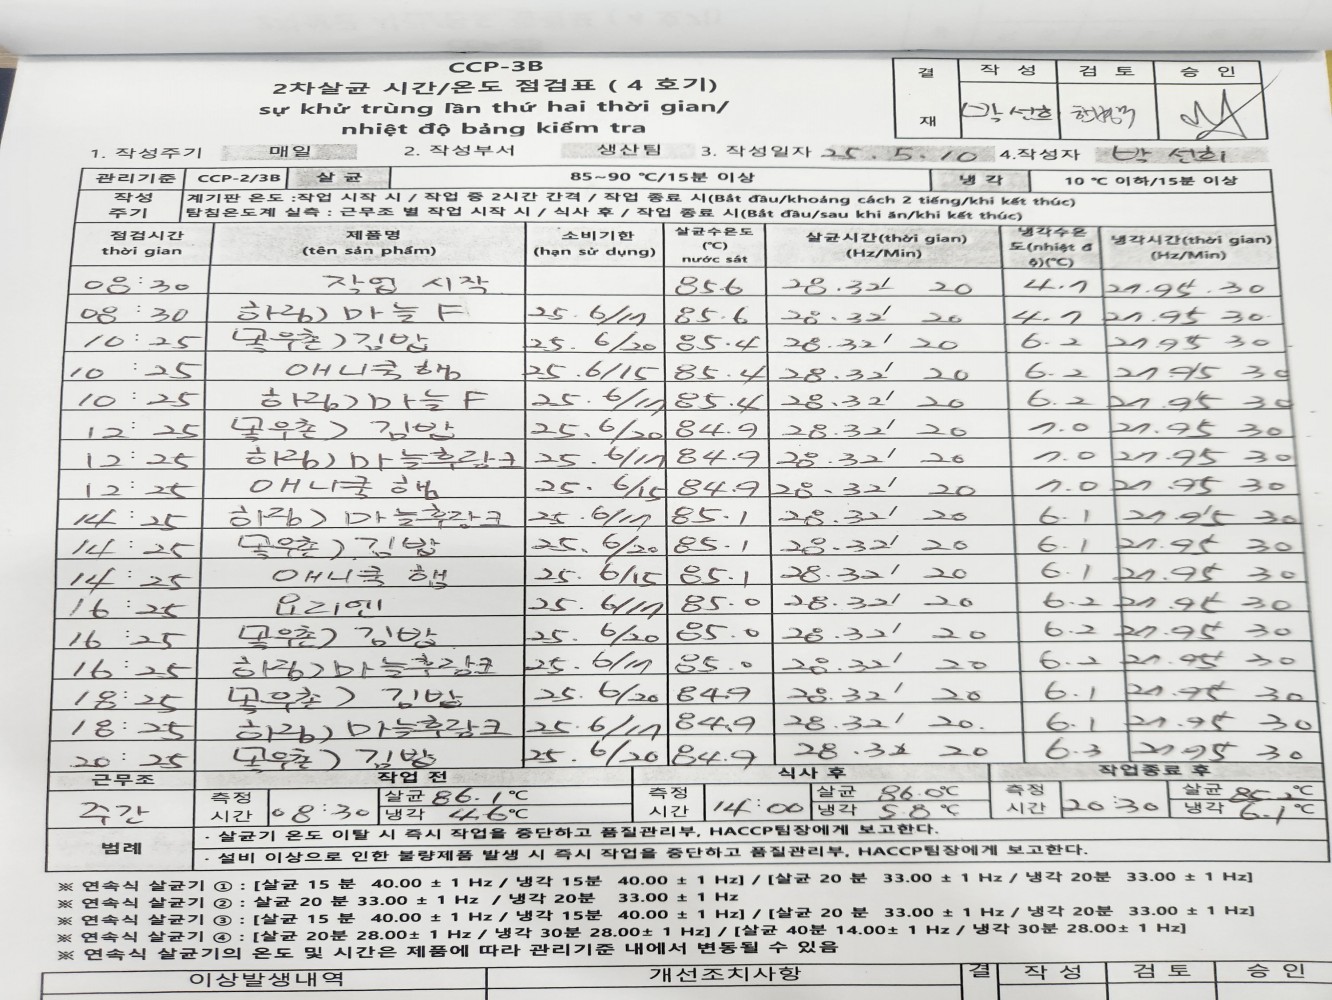 CCP-3B
2차살균 시간/온도 점검표 ( 4 호기)
sự khử trùng lần thứ hai thời gian/
nhiệt độ bảng kiểm tra
결 재 작 성 검 토 승 인
박 선희
1. 작성주기 매일 2. 작성부서 생산팀 3. 작성일자 25. 5. 10 4.작성자 박 선희
관리기준 CCP-2/3B 살 균 85~90 ℃/15분 이상 냉 각 10 ℃ 이하/15분 이상
작성 주기 계기판 온도 :작업 시작 시 / 작업 중 2시간 간격 / 작업 종료 시(Bắt đầu/khoảng cách 2 tiếng/khi kết thúc)
탐침온도계 실측 : 근무조 별 작업 시작 시 / 식사 후 / 작업 종료 시(Bắt đầu/sau khi ăn/khi kết thúc)
점검시간 제품명 소비기한 살균수온도 살균시간(thời gian) 냉각수온 냉각시간(thời gian)
thời gian (tên sản phẩm) (hạn sử dụng) (℃) nước sát (Hz/Min) 도(nhiệt độ)(℃) (Hz/Min)
08:30 작업 시작 85.6 28.32' 20 4.7 27.95 30
08:30 하림) 마늘 F 25. 6/17 85.6 28.32' 20 4.7 27.95 30
10:25 목우촌) 김밥 25. 6/20 85.4 28.32' 20 6.2 27.95 30
10:25 애니쿡 햄 25. 6/15 85.4 28.32' 20 6.2 27.95 30
10:25 하림) 마늘 F 25. 6/17 85.4 28.32' 20 6.2 27.95 30
12:25 목우촌) 김밥 25. 6/20 84.9 28.32' 20 7.0 27.95 30
12:25 하림) 마늘후랑크 25. 6/17 84.9 28.32' 20 7.0 27.95 30
12:25 애니쿡 햄 25. 6/15 84.9 28.32' 20 7.0 27.95 30
14:25 하림) 마늘후랑크 25. 6/17 85.1 28.32' 20 6.1 27.95 30
14:25 목우촌) 김밥 25. 6/20 85.1 28.32' 20 6.1 27.95 30
14:25 애니쿡 햄 25. 6/15 85.1 28.32' 20 6.1 27.95 30
16:25 요리엔 25. 6/17 85.0 28.32' 20 6.2 27.95 30
16:25 목우촌) 김밥 25. 6/20 85.0 28.32' 20 6.2 27.95 30
16:25 하림) 마늘후랑크 25. 6/17 85.0 28.32' 20 6.2 27.95 30
18:25 목우촌) 김밥 25. 6/20 84.9 28.32' 20 6.1 27.95 30
18:25 하림) 마늘후랑크 25. 6/17 84.9 28.32' 20. 6.1 27.95 30
20:25 목우촌) 김밥 25. 6/20 84.9 28.32 20 6.3 27.95 30
근무조 작업 전 식사 후 작업종료 후
주간 측정 시간 08:30 살균 86.1℃ 냉각 4.6℃ 측정 시간 14:00 살균 86.0℃ 냉각 5.8℃ 측정 시간 20:30 살균 85.2℃ 냉각 6.1℃
범례 · 살균기 온도 이탈 시 즉시 작업을 중단하고 품질관리부, HACCP팀장에게 보고한다.
· 설비 이상으로 인한 불량제품 발생 시 즉시 작업을 중단하고 품질관리부, HACCP팀장에게 보고한다.
※ 연속식 살균기 ① : [살균 15 분 40.00 ± 1 Hz / 냉각 15분 40.00 ± 1 Hz] / [살균 20 분 33.00 ± 1 Hz / 냉각 20분 33.00 ± 1 Hz]
※ 연속식 살균기 ② : 살균 20 분 33.00 ± 1 Hz / 냉각 20분 33.00 ± 1 Hz
※ 연속식 살균기 ③ : [살균 15 분 40.00 ± 1 Hz / 냉각 15분 40.00 ± 1 Hz] / [살균 20 분 33.00 ± 1 Hz / 냉각 20분 33.00 ± 1 Hz]
※ 연속식 살균기 ④ : [살균 20분 28.00± 1 Hz / 냉각 30분 28.00± 1 Hz] / [살균 40분 14.00± 1 Hz / 냉각 30분 28.00± 1 Hz]
※ 연속식 살균기의 온도 및 시간은 제품에 따라 관리기준 내에서 변동될 수 있음
이상발생내역 개선조치사항 결 작 성 검 토 승 인